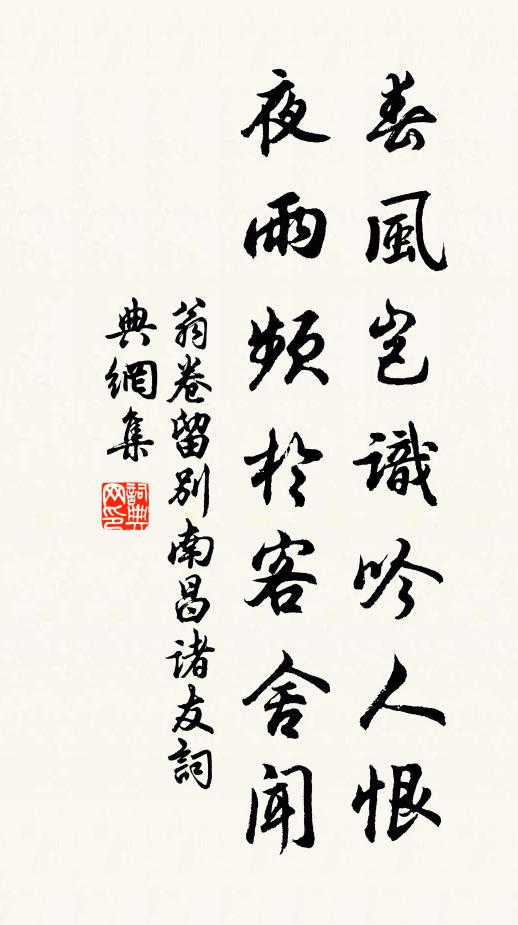 春風豈識吟人恨
夜雨頻於客舍聞
翁卷留別南昌諸友詞
典網集
詞典
网印